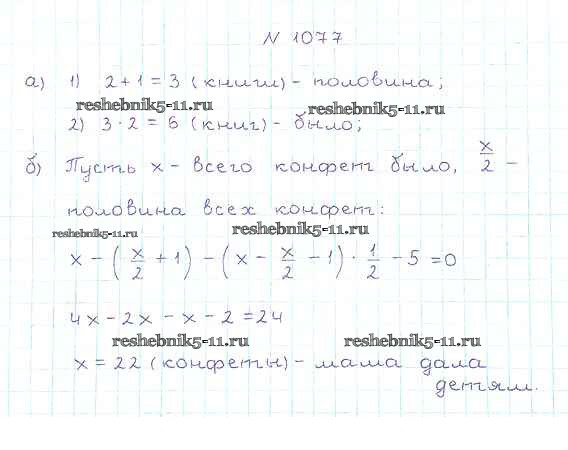 N 1077
а) 1) 2 + 1 = 3 (книги) - половина;
reshebnik5-11.ru reshebnik5-11.ru
2) 3 · 2 = 6 (книг) - было;
б) Пусть x - всего конфет было, x/2 -
половина всех конфет:
reshebnik5-11.ru reshebnik5-11.ru
x - (x/2 + 1) - (x - x/2 - 1) · 1/2 - 5 = 0
4x - 2x - x - 2 = 24
reshebnik5-11.ru reshebnik5-11.ru
x = 22 (конфеты) - мама дала
детям.